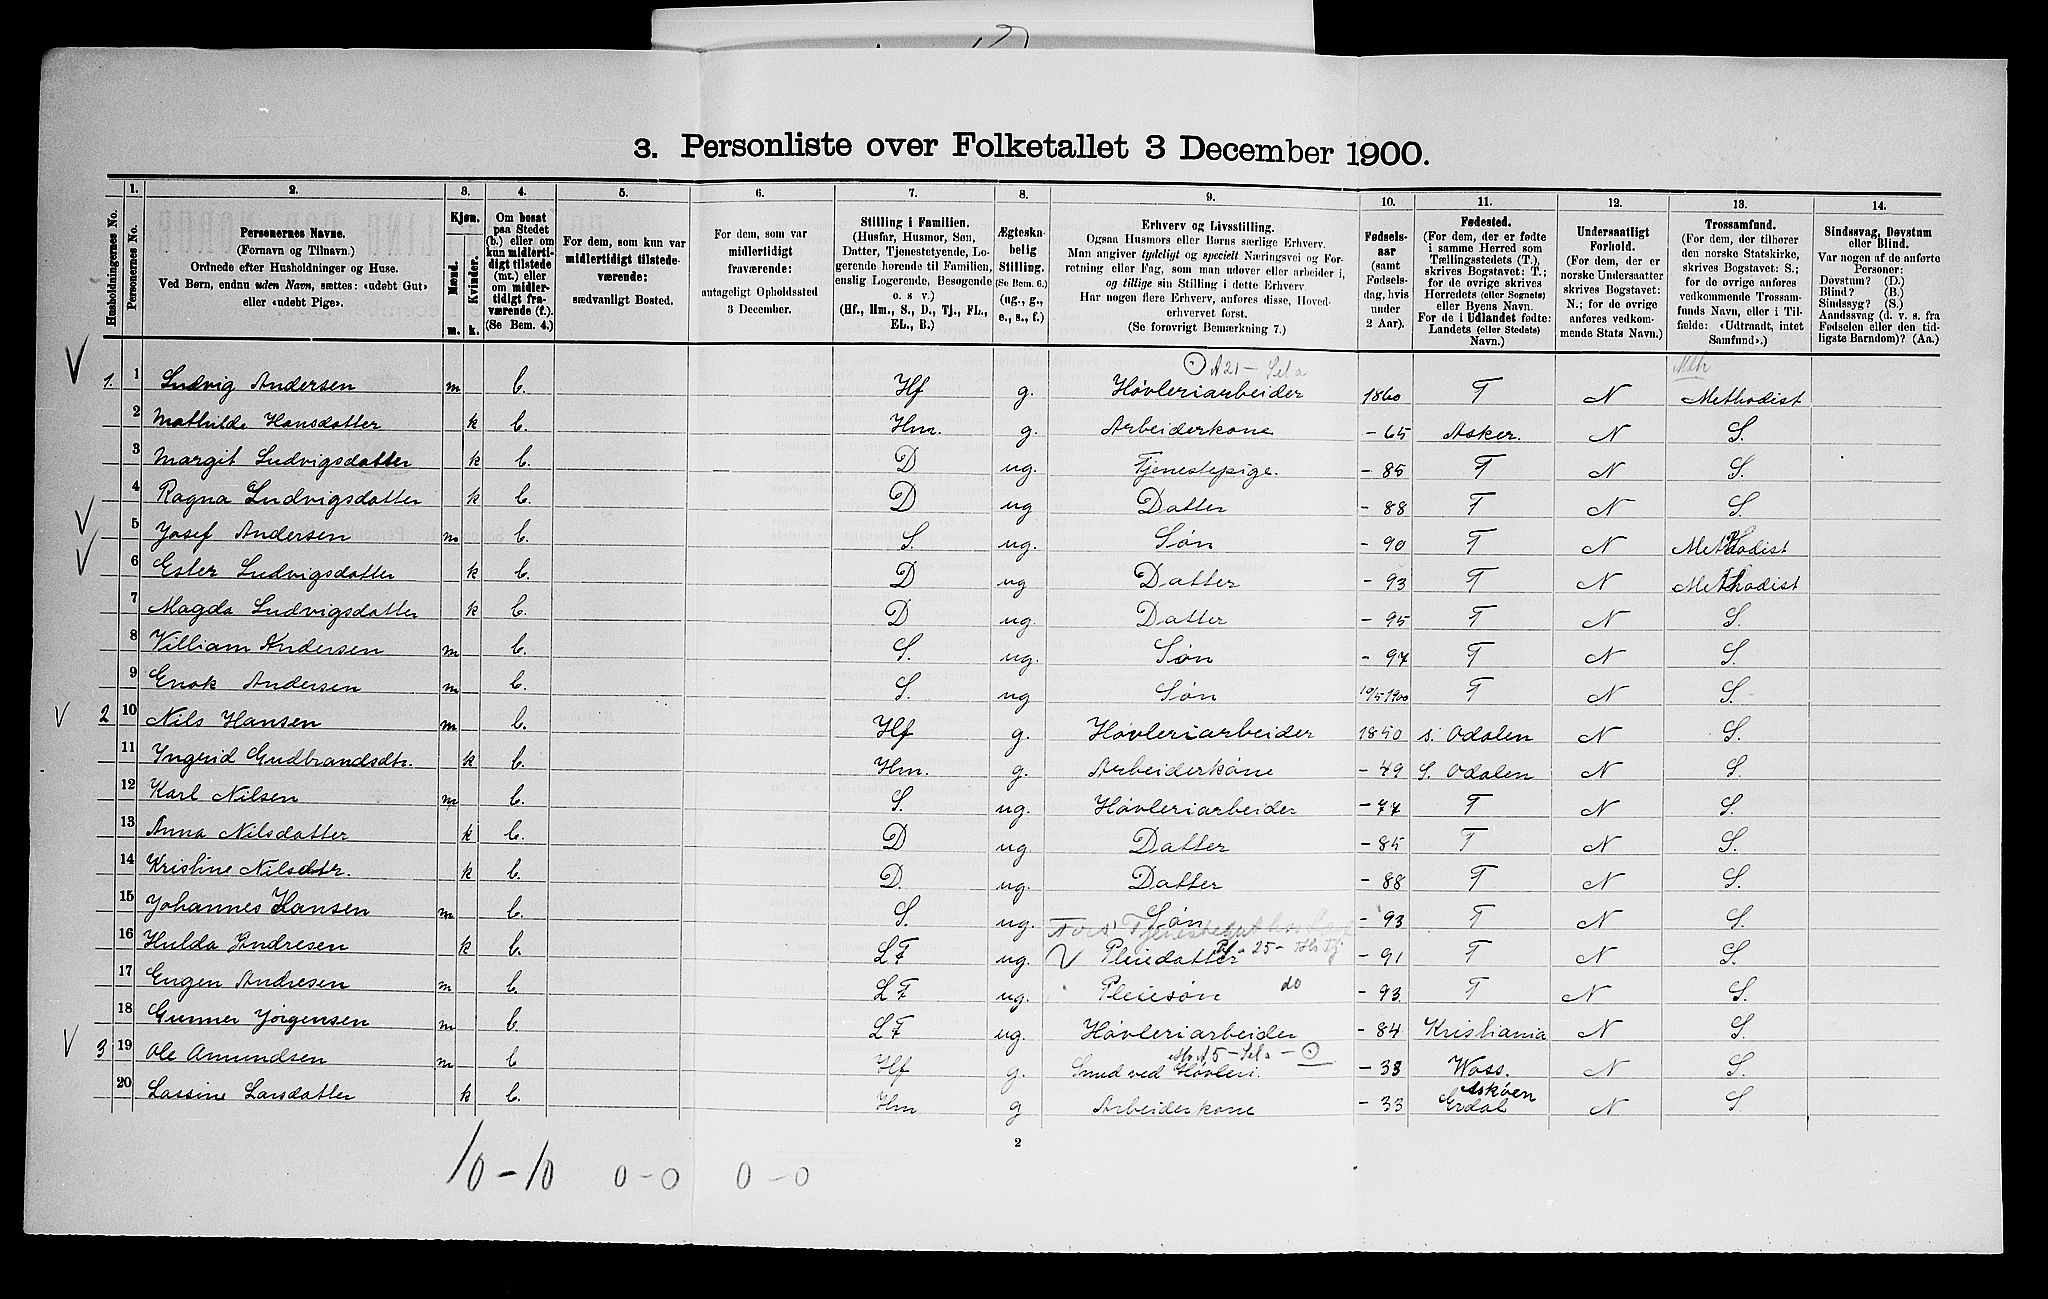 3. Personliste over Folketallet 3 December 1900.
Husholdningernes No.
1. Personernes No.
2. Personernes Navne. (Fornavn og Tilnavn.) Ordnede efter Husholdninger og Huse. Ved Børn, endnu uden Navn, sættes: «udøbt Gut» eller «udøbt Pige».
3. Kjøn. Mænd. m. Kvinder. k.
4. Om bosat paa Stedet (b.) eller om kun midlertidigt tilstede (mt.) eller om midlertidigt fraværende (f.). (Se Bem. 4.)
5. For dem, som kun var midlertidigt tilstedeværende: sædvanligt Bosted.
6. For dem, som var midlertidigt fraværende: antageligt Opholdssted 3 December.
7. Stilling i Familien. (Husfar, Husmor, Søn, Datter, Tjenestetyende, Logerende hørende til Familien, enslig Logerende, Besøgende o. s v.) (Hf., Hm., S., D., Tj., FL., EL., B.)
8. Ægteskabelig Stilling. (Se Bem. 6.) (ug., g., e., s., f.)
9. Erhverv og Livsstilling. Ogsaa Husmors eller Børns særlige Erhverv. Man angiver tydeligt og specielt Næringsvei og Forretning eller Fag, som man udøver eller arbeider i, og tillige sin Stilling i dette Erhverv. Har nogen flere Erhverv, anføres disse, Hovederhvervet først. (Se forøvrigt Bemærkning 7.)
10. Fødselsaar (samt Fødselsdag, hvis under 2 Aar).
11. Fødested. (For dem, der er fødte i samme Herred som Tællingsstedets (T.), skrives Bogstavet: T.; for de øvrige skrives Herredets (eller Sognets) eller Byens Navn. For de i Udlandet fødte: Landets (eller Stedets) Navn.)
12. Undersaatligt Forhold. (For dem, der er norske Undersaatter skrives Bogstavet: N.; for de øvrige anføres vedkommende Stats Navn.)
13. Trossamfund. (For dem, der tilhører den norske Statskirke, skrives Bogstavet: S.; for de øvrige anføres vedkommende Trossamfunds Navn, eller i Tilfælde: «Udtraadt, intet Samfund».)
14. Sindssvag, Døvstum eller Blind. Var nogen af de anførte Personer: Døvstum? (D.) Blind? (B.) Sindssyg? (S.) Aandssvag (d. v. s. fra Fødselen eller den tidligste Barndom)? (Aa.)
A 21 - Sela Meth
1. 1 Ludvig Andersen m b. Hf g. Høvleriarbeider 1860 T N Methodist
2 Mathilde Hansdatter k b. Hm. g. Arbeiderkone - 65 Asker. N S.
3 Margit Ludvigsdatter k b. D ug. Tjenestepige. - 85 T N S.
4 Ragna Ludvigsdatter k b. D ug Datter - 88 T N S.
5 Josef Andersen m b. S. ug. Søn - 90 T N Methodist
6 Ester Ludvigsdatter k b. D ug Datter - 93 T N Methodist
7 Magda Ludvigsdatter k b. D ug. Datter - 95 T N S.
8 Villiam Andersen m b. S. ug. Søn - 97 T N S.
9 Enok Andersen m b. S. ug Søn 19/5 1900 T N S.
2 10 Nils Hansen m b. Hf g. Høvleriarbeider 1850 s. Odalen N S.
11 Yngrid Gudbrandsdtr. k b. Hm. g. Arbeiderkone - 49 S. Odalen N S.
12 Karl Nilsen m b. S. ug. Høvleriarbeider - 77 T N S.
13 Anna Nilsdatter k b. D ug Datter - 85 T N S.
14 Kristine Nilsdtr. k b. D. ug. Datter - 88 T N S.
15 Johannes Hansen m b. S. ug. Søn - 93 T N S.
16 Hulda Andresen k b. LF ug. Pleiedatter - 91 T N S.
17 Eugen Andresen m b. LF ug. Pleiesøn do - 93 T N S.
18 Gunner Jørgensen m b. LF ug. Høvleriarbeider - 84 Kristiania N S.
A 5 - Sela -
3 19 Ole Amundsen m b Hf g. Smed ved Høvleri. - 33 Woss. N S.
20 Lassine Larsdatter k b. Hm g Arbeiderkone - 33 Askøen Erdal N S.
2
10 - 10 0 - 0 0 - 0